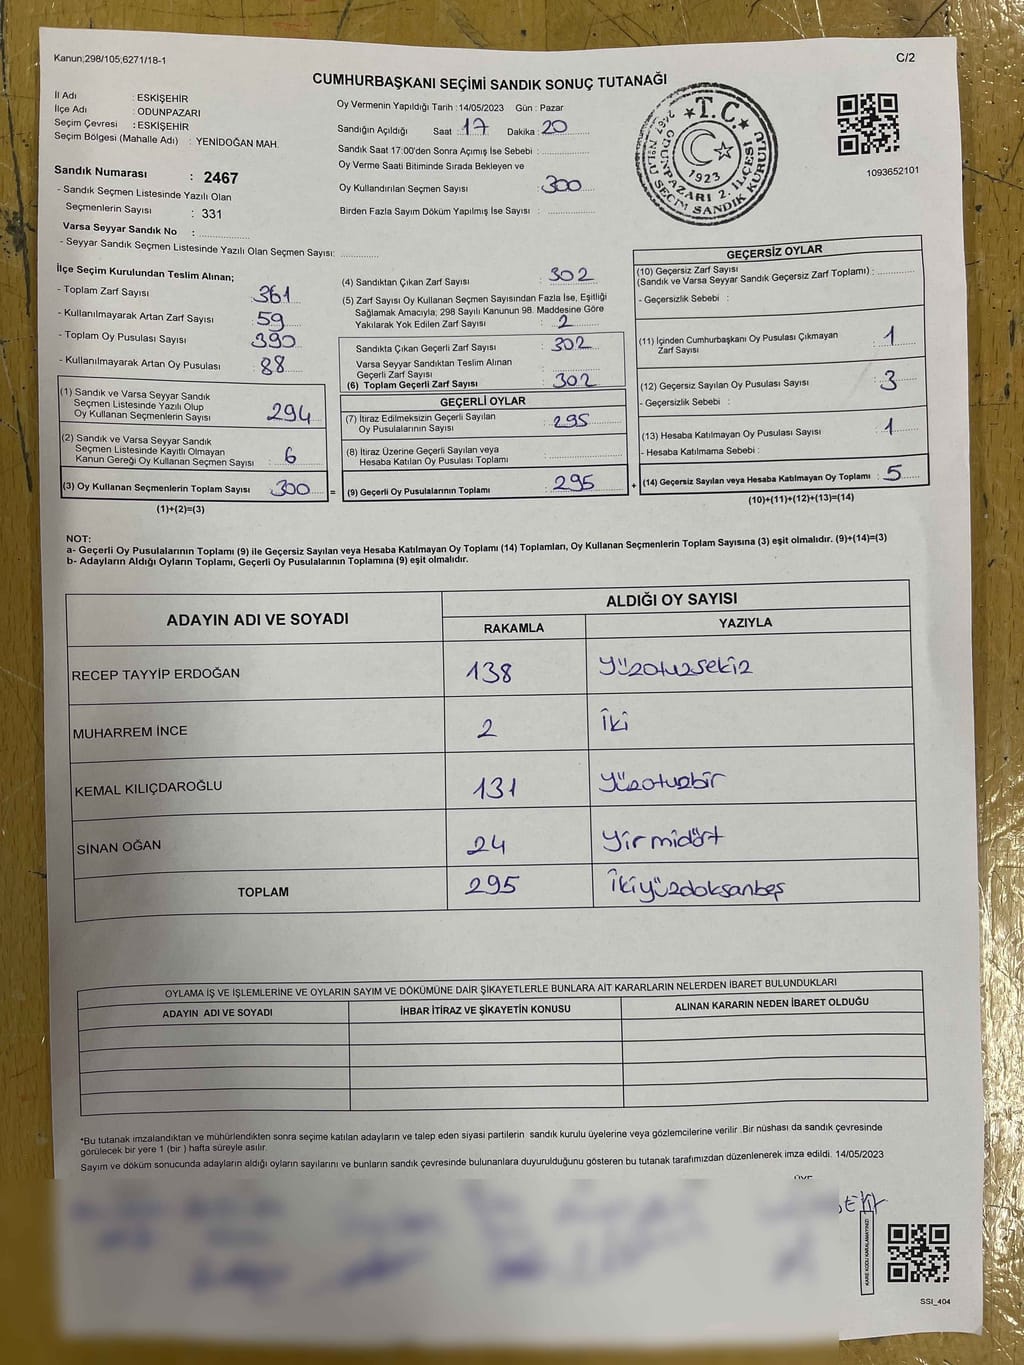 Kanun;298/105;6271/18-1
C/2
CUMHURBAŞKANI SEÇİMİ SANDIK SONUÇ TUTANAĞI
İl Adı : ESKİŞEHİR
İlçe Adı : ODUNPAZARI
Seçim Çevresi : ESKİŞEHİR
Seçim Bölgesi (Mahalle Adı) : YENİDOĞAN MAH.
Sandık Numarası : 2467
- Sandık Seçmen Listesinde Yazılı Olan
Seçmenlerin Sayısı : 331
Varsa Seyyar Sandık No :
- Seyyar Sandık Seçmen Listesinde Yazılı Olan Seçmen Sayısı:
Oy Vermenin Yapıldığı Tarih :14/05/2023 Gün : Pazar
Sandığın Açıldığı Saat : 17 Dakika : 20
Sandık Saat 17:00'den Sonra Açımış İse Sebebi :
Oy Verme Saati Bitiminde Sırada Bekleyen ve
Oy Kullandırılan Seçmen Sayısı : 300
Birden Fazla Sayım Döküm Yapılmış İse Sayısı :
T.C.
1923
ODUNPAZARI 2. İLÇESİ
2467 NOLU SEÇİM SANDIK KURULU
1093652101
İlçe Seçim Kurulundan Teslim Alınan;
- Toplam Zarf Sayısı : 361
- Kullanılmayarak Artan Zarf Sayısı : 59
- Toplam Oy Pusulası Sayısı : 390
- Kullanılmayarak Artan Oy Pusulası : 88
(1) Sandık ve Varsa Seyyar Sandık
Seçmen Listesinde Yazılı Olup
Oy Kullanan Seçmenlerin Sayısı : 294
(2) Sandık ve Varsa Seyyar Sandık
Seçmen Listesinde Kayıtlı Olmayan
Kanun Gereği Oy Kullanan Seçmen Sayısı : 6
(3) Oy Kullanan Seçmenlerin Toplam Sayısı : 300
(1)+(2)=(3)
=
(4) Sandıktan Çıkan Zarf Sayısı : 302
(5) Zarf Sayısı Oy Kullanan Seçmen Sayısından Fazla İse, Eşitliği
Sağlamak Amacıyla; 298 Sayılı Kanunun 98. Maddesine Göre
Yakılarak Yok Edilen Zarf Sayısı : 2
Sandıkta Çıkan Geçerli Zarf Sayısı : 302
Varsa Seyyar Sandıktan Teslim Alınan
Geçerli Zarf Sayısı
(6) Toplam Geçerli Zarf Sayısı : 302
GEÇERLİ OYLAR
(7) İtiraz Edilmeksizin Geçerli Sayılan
Oy Pusulalarının Sayısı : 295
(8) İtiraz Üzerine Geçerli Sayılan veya
Hesaba Katılan Oy Pusulası Toplamı :
(9) Geçerli Oy Pusulalarının Toplamı : 295
+
GEÇERSİZ OYLAR
(10) Geçersiz Zarf Sayısı
(Sandık ve Varsa Seyyar Sandık Geçersiz Zarf Toplamı) :
- Geçersizlik Sebebi :
(11) İçinden Cumhurbaşkanı Oy Pusulası Çıkmayan
Zarf Sayısı : 1
(12) Geçersiz Sayılan Oy Pusulası Sayısı : 3
- Geçersizlik Sebebi :
(13) Hesaba Katılmayan Oy Pusulası Sayısı : 1
- Hesaba Katılmama Sebebi :
(14) Geçersiz Sayılan veya Hesaba Katılmayan Oy Toplamı : 5
(10)+(11)+(12)+(13)=(14)
NOT:
a- Geçerli Oy Pusulalarının Toplamı (9) ile Geçersiz Sayılan veya Hesaba Katılmayan Oy Toplamı (14) Toplamları, Oy Kullanan Seçmenlerin Toplam Sayısına (3) eşit olmalıdır. (9)+(14)=(3)
b- Adayların Aldığı Oyların Toplamı, Geçerli Oy Pusulalarının Toplamına (9) eşit olmalıdır.
ADAYIN ADI VE SOYADI
ALDIĞI OY SAYISI
RAKAMLA YAZIYLA
RECEP TAYYİP ERDOĞAN 138 yüzotuzsekiz
MUHARREM İNCE 2 iki
KEMAL KILIÇDAROĞLU 131 yüzotuzbir
SİNAN OĞAN 24 yirmidört
TOPLAM 295 ikiyüzdoksanbeş
OYLAMA İŞ VE İŞLEMLERİNE VE OYLARIN SAYIM VE DÖKÜMÜNE DAİR ŞİKAYETLERLE BUNLARA AİT KARARLARIN NELERDEN İBARET BULUNDUKLARI
ADAYIN ADI VE SOYADI İHBAR İTİRAZ VE ŞİKAYETİN KONUSU ALINAN KARARIN NEDEN İBARET OLDUĞU
*Bu tutanak imzalandıktan ve mühürlendikten sonra seçime katılan adayların ve talep eden siyasi partilerin sandık kurulu üyelerine veya gözlemcilerine verilir .Bir nüshası da sandık çevresinde
görülecek bir yere 1 (bir ) hafta süreyle asılır.
Sayım ve döküm sonucunda adayların aldığı oyların sayılarını ve bunların sandık çevresinde bulunanlara duyurulduğunu gösteren bu tutanak tarafımızdan düzenlenerek imza edildi. 14/05/2023
KARE KODU KARALAMAYINIZ!
SSİ_404